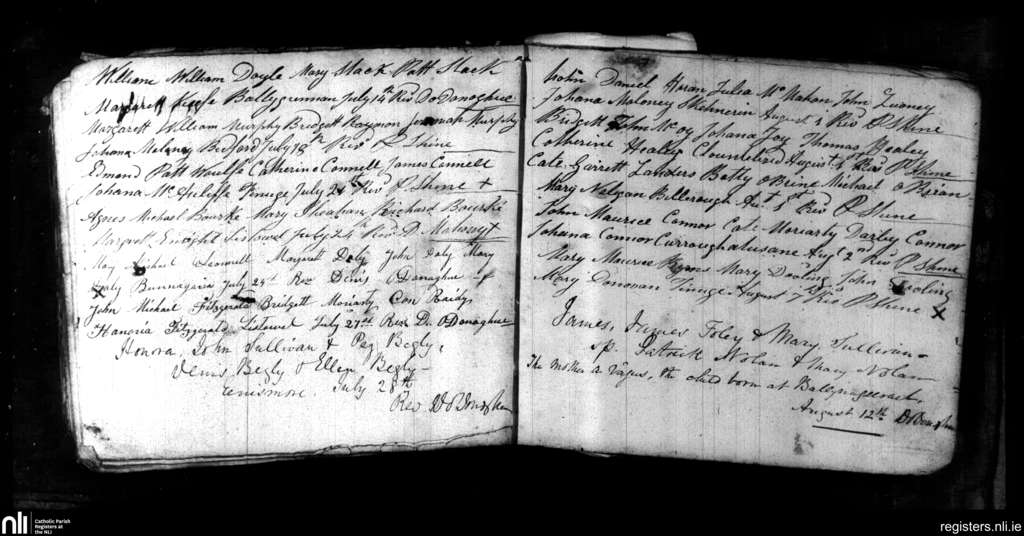 William William Doyle Mary Slack Patt Slack
Margarett Ballygunnan July 14th Revd D. ODonoghue
Margarett William Murphy Bridgett Murphy
Johana Bedford July 18th Revd P Shine
Edmond Patt Woulfe Catherine Connell James Connell
Johana Mc Auliffe Finuge July 24th Revd P. Shine +
Agnes Michael Bourke Mary Sheahan Richard Bourke
Margrett Enright Listowel July 24th Revd D. Mahony
Mary Michael Scannell Margaret Daly John Daly Mary
Daly Bunnagarra July 24th Rev Denis ODonaghue
John Michael Fitzgerald Bridgett Moriarty Con Reidy
Hanoria Fitzgerald Listowel July 27th Revd D. ODonaghue
Honora, John Sullivan & Peg Begly,
Denis Begly & Ellen Begly
Ennismore. July 28th
Rev D O Donoghue
John Daniel Horan Julia McMahon John Looney
Johana Moloney Skehnerin August 1 Revd P Shine
Bridgett John McCoy Johana Joy Thomas Healey
Catherine Healey August 4 Revd P Shine
Cate Garrett Landers Betty OBrine Michael OBrian
Mary Nelgan Billerough Aut 5 Revd P Shine
John Maurece Connor Cate Moriarty Darley Connor
Johana Connor Curraghatusane Augt 2nd Revd P Shine
Mary Maurece Mary Dooling John Dooling
Mary Donovan Finuge August 7 Revd P Shine
James, James Foley & Mary Sullivan
sp. Patrick Nolan & Mary Nolan
The mother a the child born at
August 12th D O Donoghue
nli
Catholic Parish
Registers at
the NLI
registers.nli.ie